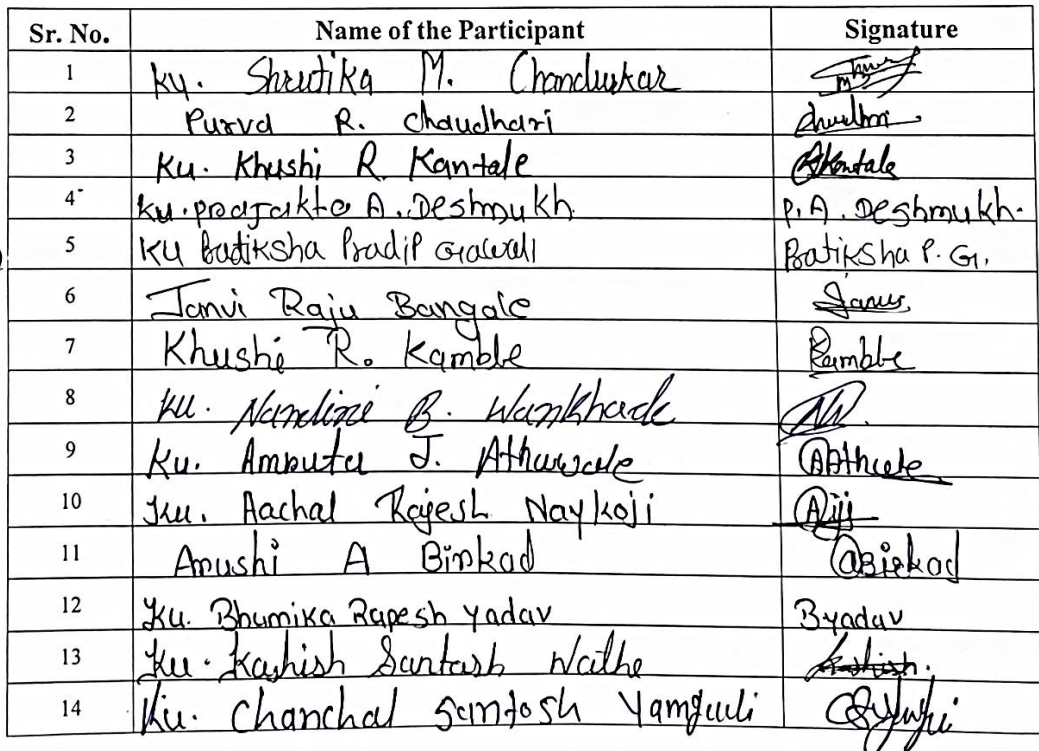 Sr. No. Name of the Participant Signature
1 Ku. Shrutika M. Chandurkar
2 Purva R. Chaudhari
3 Ku. Khushi R. Kantale Kantale
4 Ku. prajakta A. Deshmukh. P. A. Deshmukh.
5 Ku Pratiksha Pradip Gawali Pratiksha P. G.
6 Janvi Raju Bangale
7 Khushi R. Kamble Kamble
8 Ku. Nandini B. Wankhade
9 Ku. Amruta J. Athawale
10 Ku. Aachal Rajesh Naykoji
11 Arushi A Birkad Birkad
12 Ku. Bhumika Rupesh Yadav Byadav
13 Ku. Kashish Santosh Wathe Kashish.
14 Ku. Chanchal Santosh